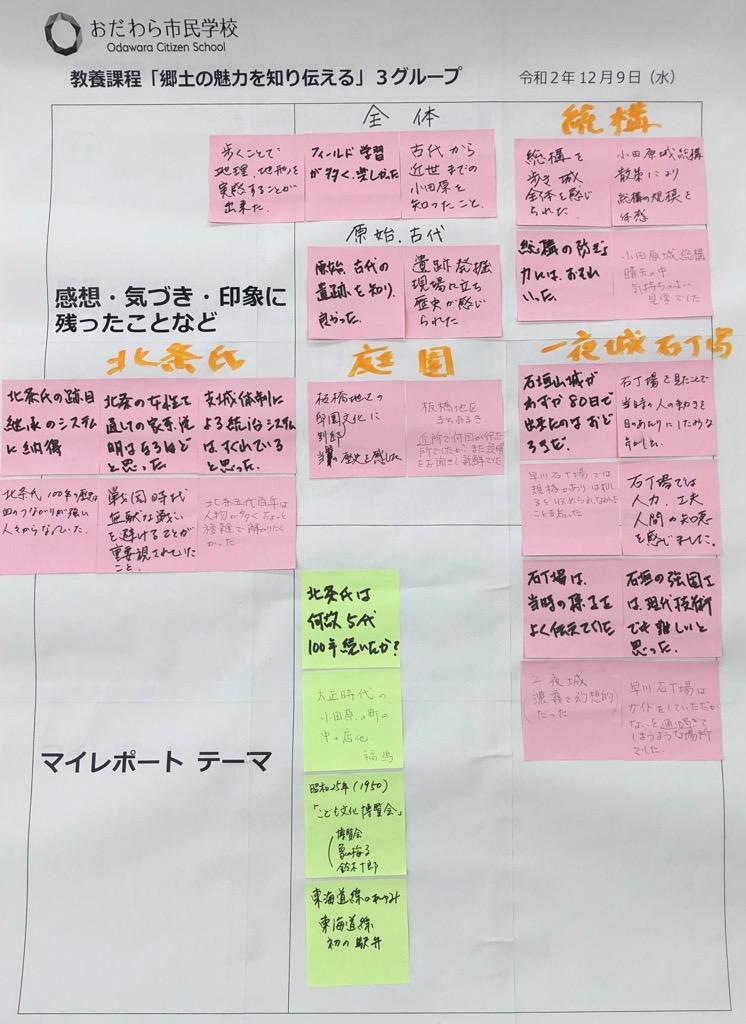 おだわら市民学校
Odawara Citizen School
教養課程「郷土の魅力を知り伝える」３グループ
令和２年１２月９日（水）
感想・気づき・印象に
残ったことなど
全体
歩くことで
地理、地形を
実感することが
出来た.
フィールド学習
が多く、楽しかった
古代から
近世までの
小田原を
知ったこと.
総構
総構を
歩き城
全体を感じ
られた.
小田原城総構
散策により
総構の規模を
体感
総構の防ぎょ
力には、おそれ
いった.
小田原城総構
晴天の中
気持ちのよい
見学でした
原始.古代
原始、古代の
遺跡を知り、
良かった.
遺跡発掘
現場に立ち
歴史が感じ
られた
北条氏
北条氏の跡目
継承のシステム
に納得
北条の女性を
通しての家系説
明はなるほど
と思った.
支城体制に
よる統治システム
は、すぐれている
と思った.
北条氏、100年の歴史は
血のつながりが強い
人々からなっていた.
戦国時代
無駄な戦い
を避けることが
重要視されていた
こと.
北条五代百年は
人物が多くちょっと
複雑で解かりにく
かった
庭園
板橋地区の
別邸
の歴史を感じた
板橋地区
まちあるき
近所で何回か行った
所でしたが、また説明
をお聞きし新鮮でした
一夜城 石丁場
石垣山城が
わずか80日で
出来たのはおど
ろきだ.
石丁場を見たことで
当時の人の動きを
目のあたりにしたような
気がした.
早川石丁場では
石丁場では
人力、工夫
人間の知恵
を感じました.
石丁場は、
当時の様子を
よく伝えていた
石垣の強固さ
は、現代技術
でも難しいと
思った.
一夜城
(濃霧で幻想的)
だった
早川石丁場は
ガイドをしていただか
ないと通り過ぎて
しまうような場所
でした.
マイレポート テーマ
北条氏は
何故5代
100年続いたか?
大正時代の
小田原の町の
中の店他
福嶋
昭和25年(1950)
「こども文化博覧会」
博覧会
象の梅子
鈴木十郎
東海道線の
東海道線
初の駅弁